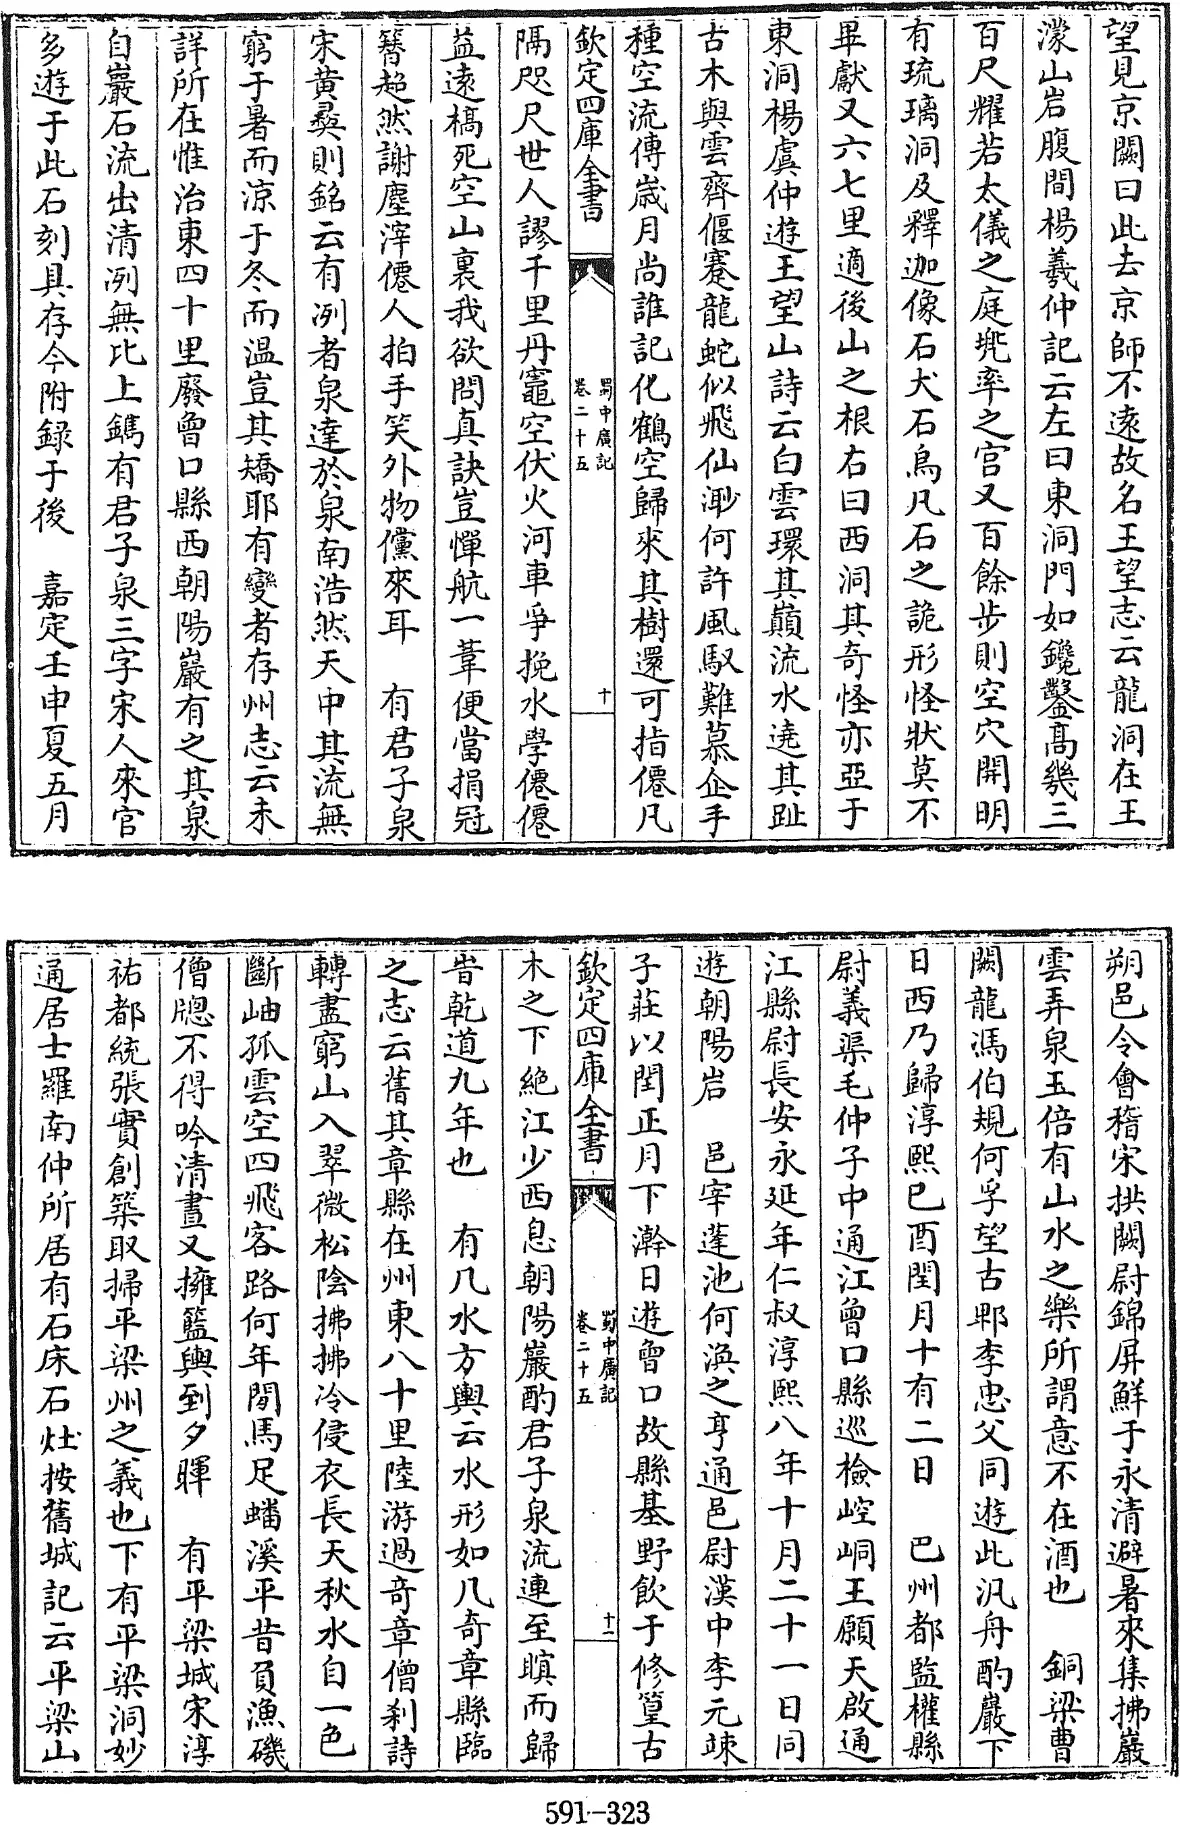 望見京闕曰此去京師不逺故名王望志云龍洞在王
濛山岩腹間楊羲仲記云左曰東洞門如鑱鑿髙幾三
百尺耀若太儀之庭兠率之宫又百餘步則空穴開明
有琉璃洞及釋迦像石犬石鳥凡石之詭形怪狀莫不
畢獻又六七里適後山之根右曰西洞其奇怪亦亞于
東洞楊虞仲遊王望山詩云白雲環其巔流水遶其趾
古木與雲齊偃蹇龍蛇似飛仙渺何許風馭難慕企手
種空流傳嵗月尚誰記化鶴空歸來其樹還可指僊凡
欽定四庫全書
蜀中廣記
卷二十五
十
隔咫尺世人謬千里丹竈空伏火河車爭挽水學僊僊
益逺槁死空山裏我欲問真訣豈憚航一葦便當捐冠
簪超然謝塵滓僊人拍手笑外物儻來耳　有君子泉
宋黄彛則銘云有冽者泉達於泉南浩然天中其流無
窮于暑而涼于冬而温豈其矯耶有變者存州志云未
詳所在惟治東四十里廢曾口縣西朝陽巖有之其泉
自巖石流出清冽無比上鐫有君子泉三字宋人來官
多遊于此石刻具存今附録于後　嘉定壬申夏五月
朔邑令會稽宋拱闕尉錦屏鮮于永清避暑來集拂巖
雲弄泉玉倍有山水之樂所謂意不在酒也　銅梁曹
闕龍馮伯規何孚望古郫李忠父同遊此汎舟酌巖下
日西乃歸淳熙已酉閏月十有二日　巴州都監權縣
尉義渠毛仲子中通江曾口縣巡檢崆峒王願天啟通
江縣尉長安永延年仁叔淳熙八年十月二十一日同
遊朝陽岩　邑宰蓬池何渙之亨通邑尉漢中李元竦
子莊以閏正月下澣日遊曾口故縣基野飲于修篁古
欽定四庫全書
蜀中廣記
卷二十五
十一
木之下絶江少西息朝陽巖酌君子泉流連至瞑而歸
旹乾道九年也　有几水方輿云水形如几奇章縣臨
之志云舊其章縣在州東八十里陸游過奇章僧刹詩
轉盡窮山入翠微松陰拂拂冷侵衣長天秋水自一色
斷岫孤雲空四飛客路何年閒馬足蟠溪平昔負漁磯
僧牕不得吟清晝又擁籃輿到夕暉　有平梁城宋淳
祐都統張實創築取掃平梁州之義也下有平梁洞妙
通居士羅南仲所居有石床石灶按舊城記云平梁山
591-323